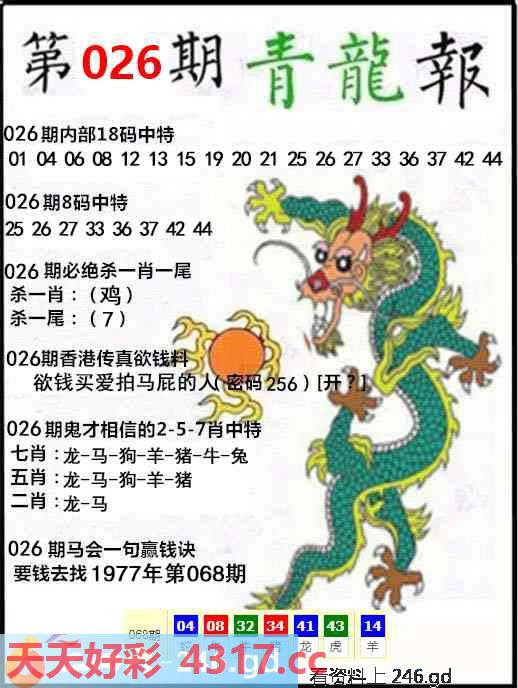 第026期青龍報
026期内部18码中特
01 04 06 08 12 13 15 19 20 21 25 26 27 33 36 37 42 44
026期8码中特
25 26 27 33 36 37 42 44
026期必绝杀一肖一尾
杀一肖：（鸡）
杀一尾：（7）
026期香港传真欲钱料
欲钱买爱拍马屁的人(密码256)[开？]
026期鬼才相信的2-5-7肖中特
七肖：龙-马-狗-羊-猪-牛-兔
五肖：龙-马-狗-羊-猪
二肖：龙-马
026期马会一句赢钱诀
要钱去找1977年第068期
068期 04 08 32 34 41 43 14
蛇 龙 虎 羊
天天好彩 4317.cc
246.gd
看资料上 246.gd